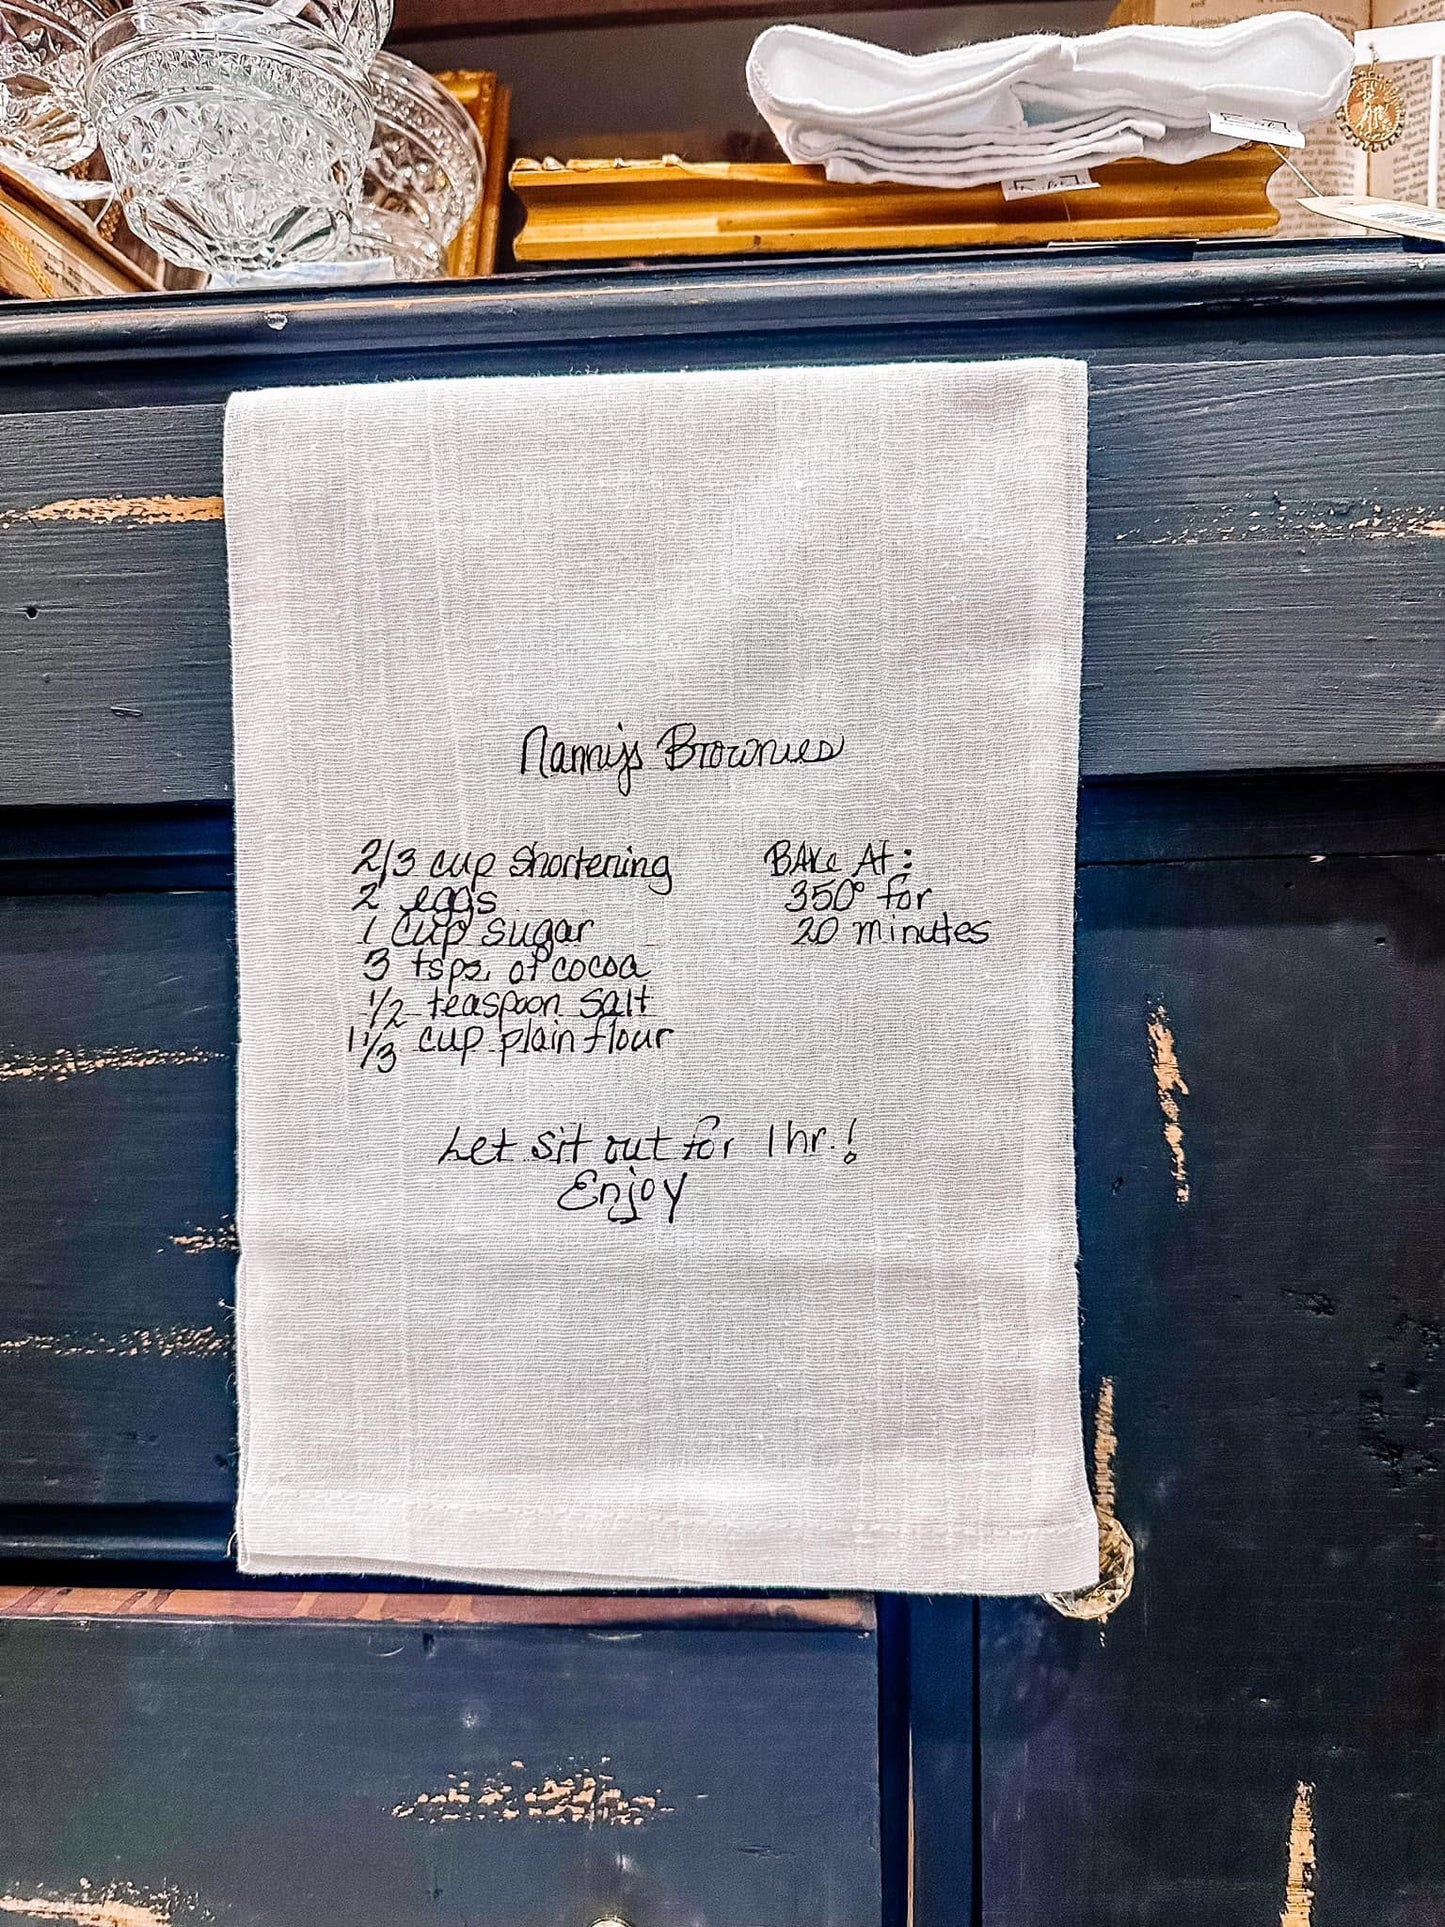 Nanny's Brownies
2/3 cup shortening
2 eggs
1 cup sugar
3 tsps. of cocoa
1/2 teaspoon salt
1 1/3 cup plain flour
BAKe At:
350° for
20 minutes
Let sit out for 1 hr.!
Enjoy